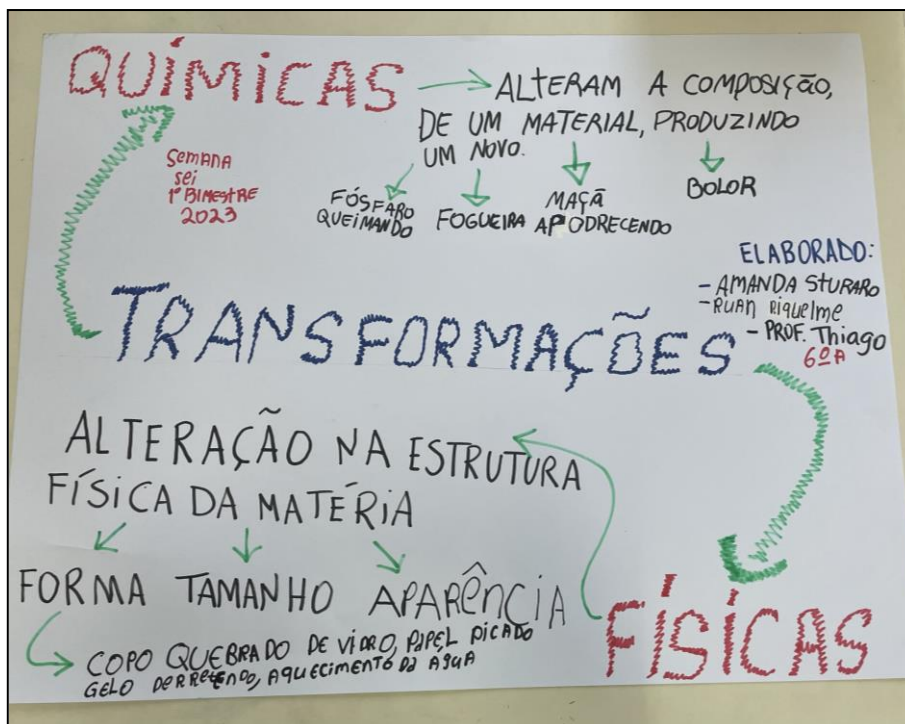 QUÍMICAS
ALTERAM A COMPOSIÇÃO,
DE UM MATERIAL, PRODUZINDO
UM NOVO.
SEMANA
SEI
1º BIMESTRE
2023
FÓSFARO
QUEIMANDO
FOGUEIRA
MAÇÃ
APODRECENDO
BOLOR
ELABORADO:
- AMANDA STURARO
- RUAN RIQUELME
- PROF. Thiago
6º A
TRANSFORMAÇÕES
ALTERAÇÃO NA ESTRUTURA
FÍSICA DA MATÉRIA
FORMA TAMANHO APARÊNCIA
COPO QUEBRADO DE VIDRO, PAPEL PICADO
GELO DERRETENDO, AQUECIMENTO DA AGUA
FÍSICAS